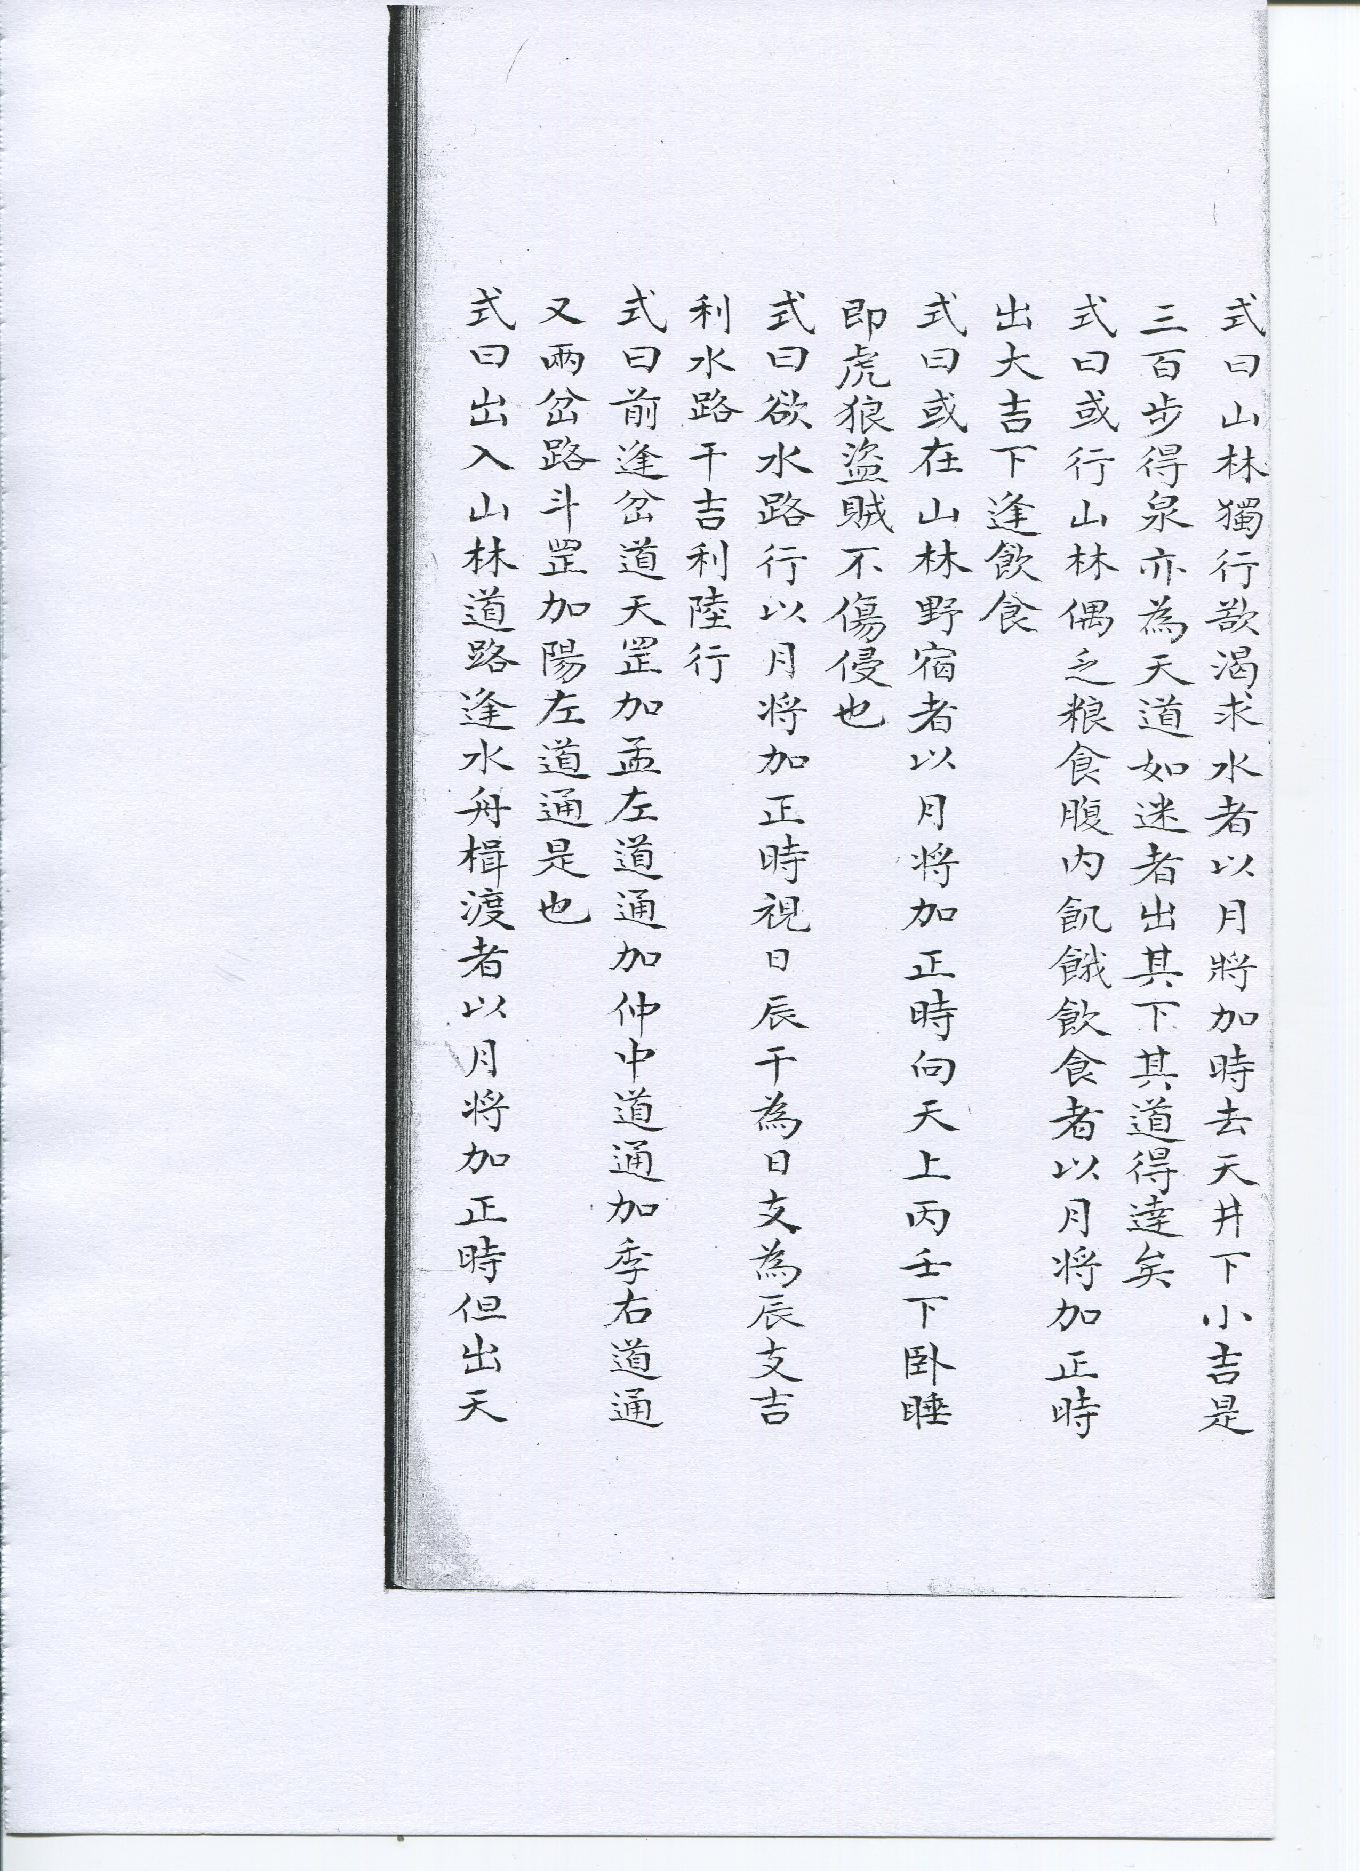 式曰山林獨行欲渴求水者以月將加時去天井下小吉是
三百步得泉亦為天道如迷者出其下其道得達矣
式曰或行山林偶乏粮食腹内飢餓飲食者以月将加正時
出大吉下逢飲食
式曰或在山林野宿者以月将加正時向天上丙壬下卧睡
即虎狼盜賊不傷侵也
式曰欲水路行以月将加正時視日辰干為日支為辰支吉
利水路干吉利陸行
式曰前逢岔道天罡加孟左道通加仲中道通加季右道通
又兩岔路斗罡加陽左道通是也
式曰出入山林道路逢水舟楫渡者以月将加正時但出天